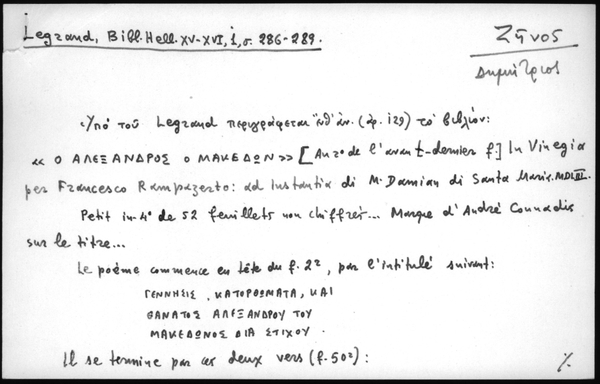 Legrand, Bibl. Hell. XV-XVI, 1, σ. 286-289.
Ζῆνος
Δημήτριος
Ὑπό τοῦ Legrand περιγράφεται ἐνθ' ἀν. (ἀρ. 129) τό βιβλίον:
« Ο ΑΛΕΞΑΝΔΡΟΣ Ο ΜΑΚΕΔΩΝ » [Au rº de l'avant-dernier f.] In Vinegia
per Francesco Rampazerto: ad Instantia di M. Damian di Santa Maria. MDLIII.
Petit in-4º de 52 feuillets non chiffrés... Marque d'André Counadis
sur le titre...
Le poème commence en tête du f. 2º, par l'intitulé suivant:
ΓΕΝΝΗΣΙΣ, ΚΑΤΟΡΘΩΜΑΤΑ, ΚΑΙ
ΘΑΝΑΤΟΣ ΑΛΕΞΑΝΔΡΟΥ ΤΟΥ
ΜΑΚΕΔΩΝΟΣ ΔΙΑ ΣΤΙΧΟΥ.
Il se termine par ces deux vers (f. 50º):